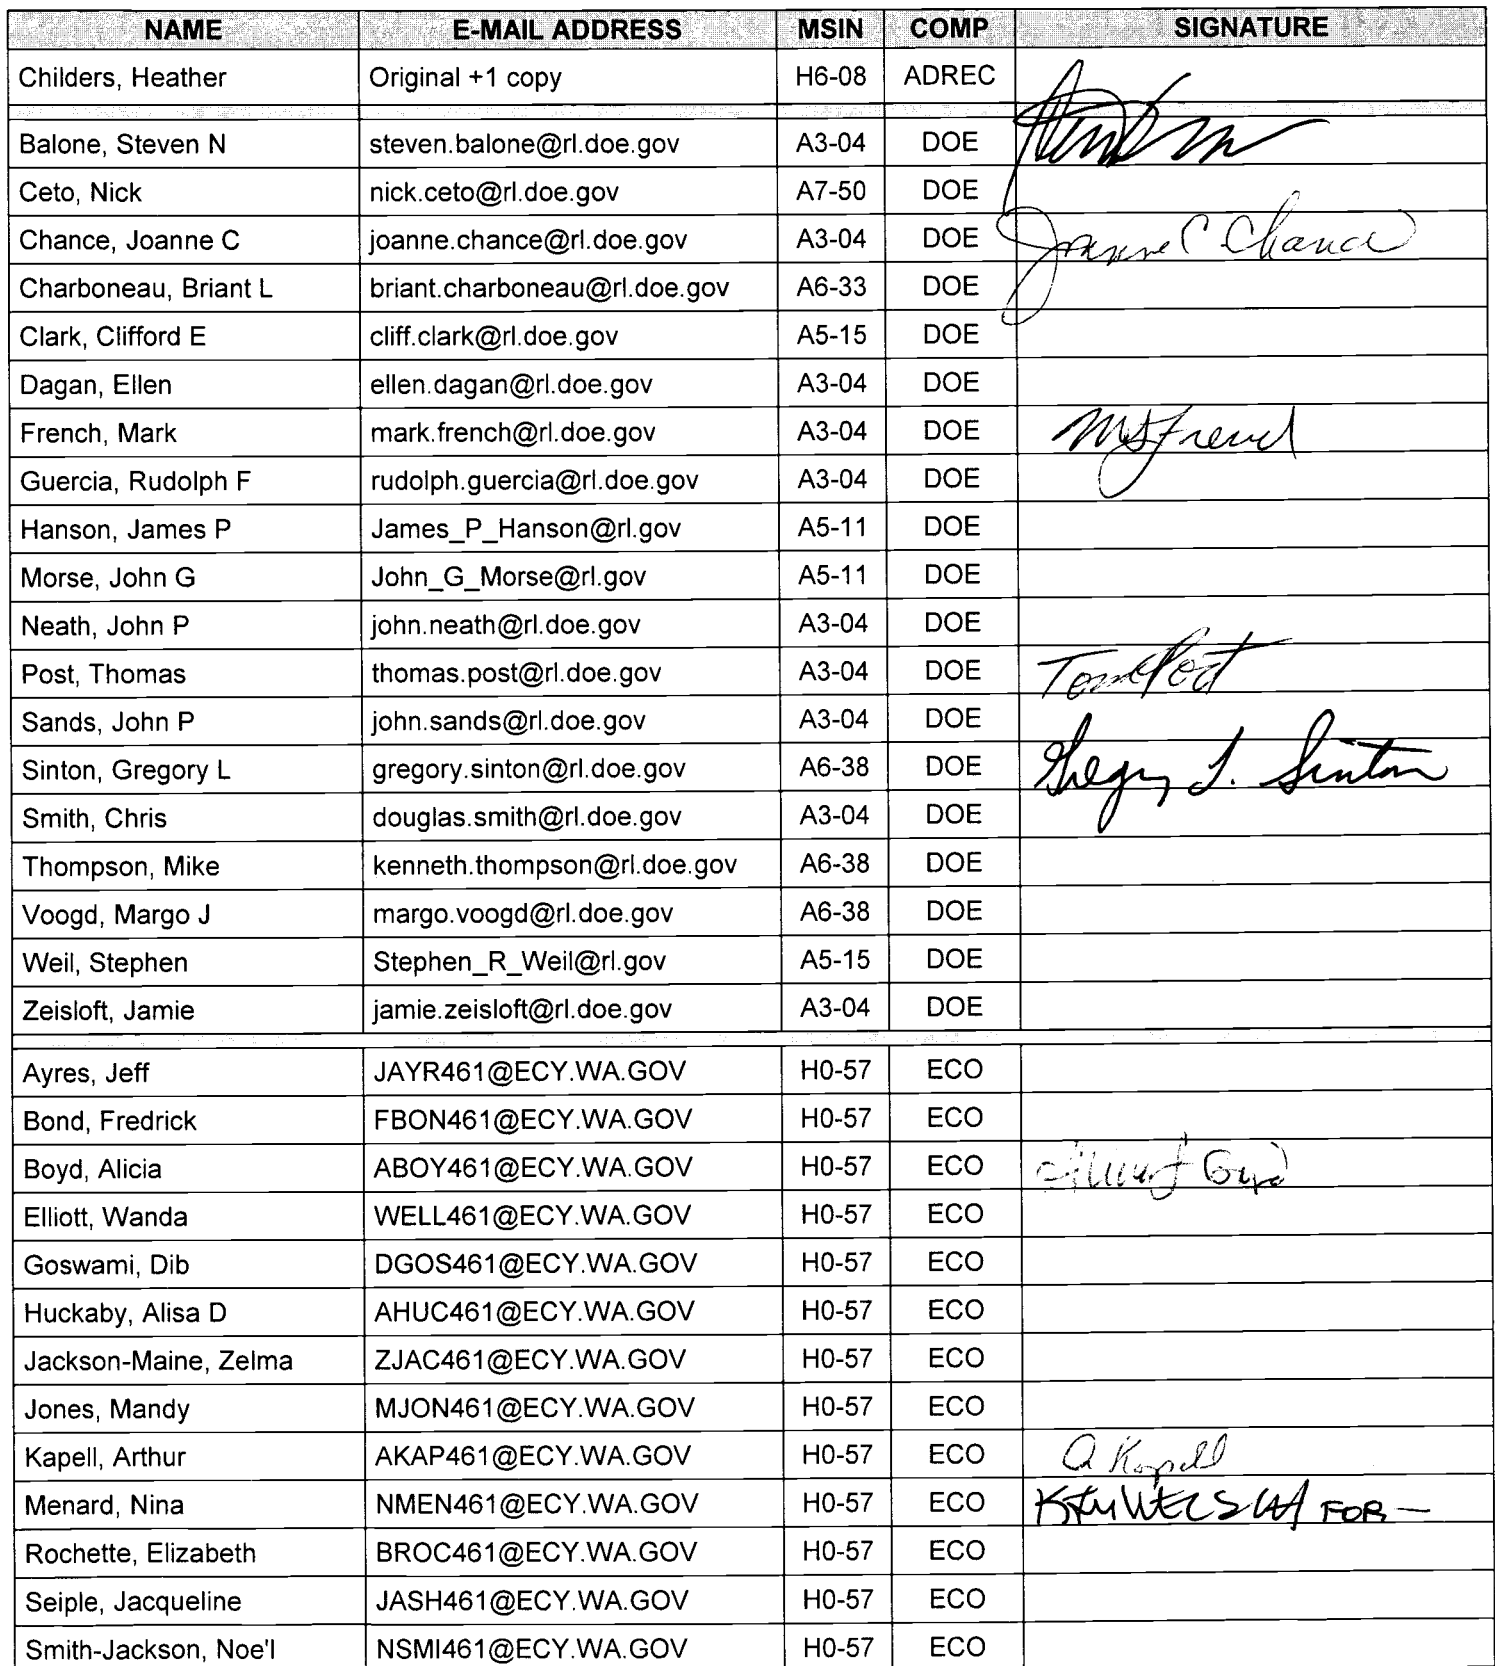 NAME E-MAIL ADDRESS MSIN COMP SIGNATURE
Childers, Heather Original +1 copy H6-08 ADREC
Balone, Steven N steven.balone@rl.doe.gov A3-04 DOE
Ceto, Nick nick.ceto@rl.doe.gov A7-50 DOE
Chance, Joanne C joanne.chance@rl.doe.gov A3-04 DOE Joanne C Chance
Charboneau, Briant L briant.charboneau@rl.doe.gov A6-33 DOE
Clark, Clifford E cliff.clark@rl.doe.gov A5-15 DOE
Dagan, Ellen ellen.dagan@rl.doe.gov A3-04 DOE
French, Mark mark.french@rl.doe.gov A3-04 DOE
Guercia, Rudolph F rudolph.guercia@rl.doe.gov A3-04 DOE
Hanson, James P James_P_Hanson@rl.gov A5-11 DOE
Morse, John G John_G_Morse@rl.gov A5-11 DOE
Neath, John P john.neath@rl.doe.gov A3-04 DOE
Post, Thomas thomas.post@rl.doe.gov A3-04 DOE Tom Post
Sands, John P john.sands@rl.doe.gov A3-04 DOE
Sinton, Gregory L gregory.sinton@rl.doe.gov A6-38 DOE Gregory L. Sinton
Smith, Chris douglas.smith@rl.doe.gov A3-04 DOE
Thompson, Mike kenneth.thompson@rl.doe.gov A6-38 DOE
Voogd, Margo J margo.voogd@rl.doe.gov A6-38 DOE
Weil, Stephen Stephen_R_Weil@rl.gov A5-15 DOE
Zeisloft, Jamie jamie.zeisloft@rl.doe.gov A3-04 DOE
Ayres, Jeff JAYR461@ECY.WA.GOV H0-57 ECO
Bond, Fredrick FBON461@ECY.WA.GOV H0-57 ECO
Boyd, Alicia ABOY461@ECY.WA.GOV H0-57 ECO
Elliott, Wanda WELL461@ECY.WA.GOV H0-57 ECO
Goswami, Dib DGOS461@ECY.WA.GOV H0-57 ECO
Huckaby, Alisa D AHUC461@ECY.WA.GOV H0-57 ECO
Jackson-Maine, Zelma ZJAC461@ECY.WA.GOV H0-57 ECO
Jones, Mandy MJON461@ECY.WA.GOV H0-57 ECO
Kapell, Arthur AKAP461@ECY.WA.GOV H0-57 ECO A Kapell
Menard, Nina NMEN461@ECY.WA.GOV H0-57 ECO FOR —
Rochette, Elizabeth BROC461@ECY.WA.GOV H0-57 ECO
Seiple, Jacqueline JASH461@ECY.WA.GOV H0-57 ECO
Smith-Jackson, Noe'l NSMI461@ECY.WA.GOV H0-57 ECO